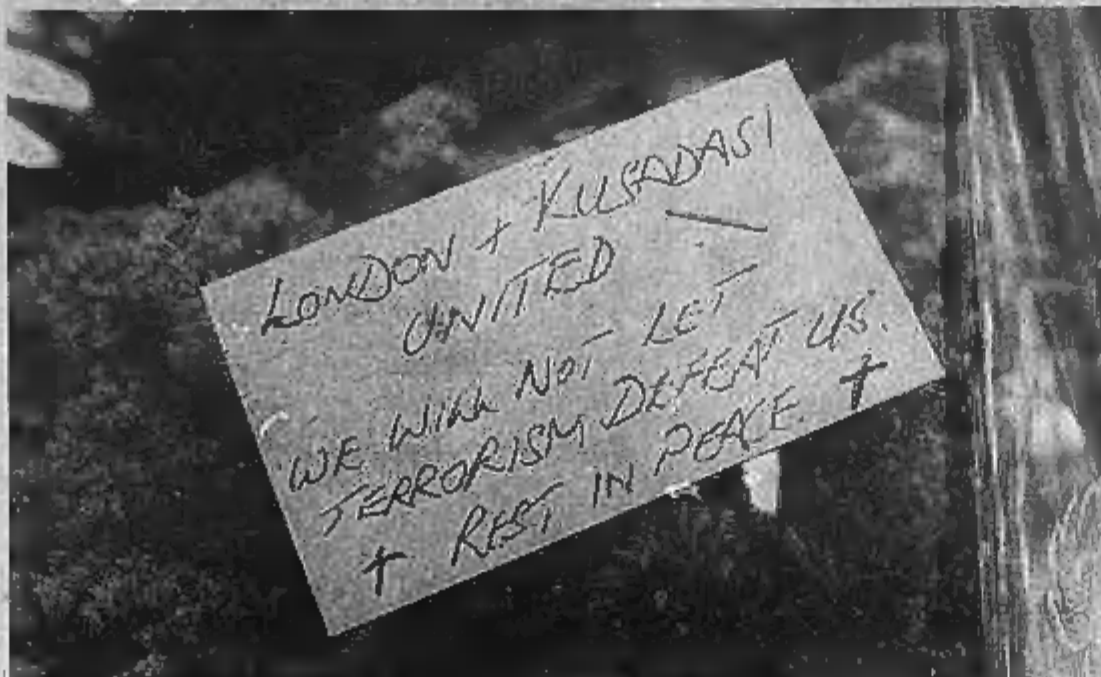 LONDON + KUSADASI
UNITED —
WE WILL NOT LET
TERRORISM DEFEAT US.
† REST IN PEACE. †